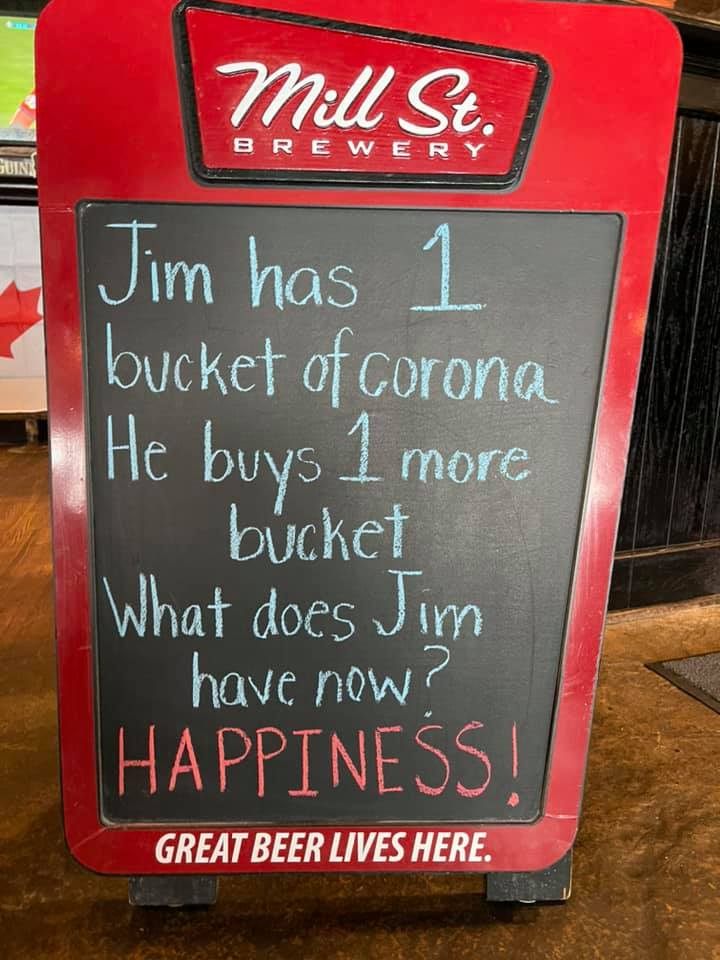 Mill St.
BREWERY
Jim has 1
bucket of corona
He buys 1 more
bucket
What does Jim
have now?
HAPPINESS!
GREAT BEER LIVES HERE.